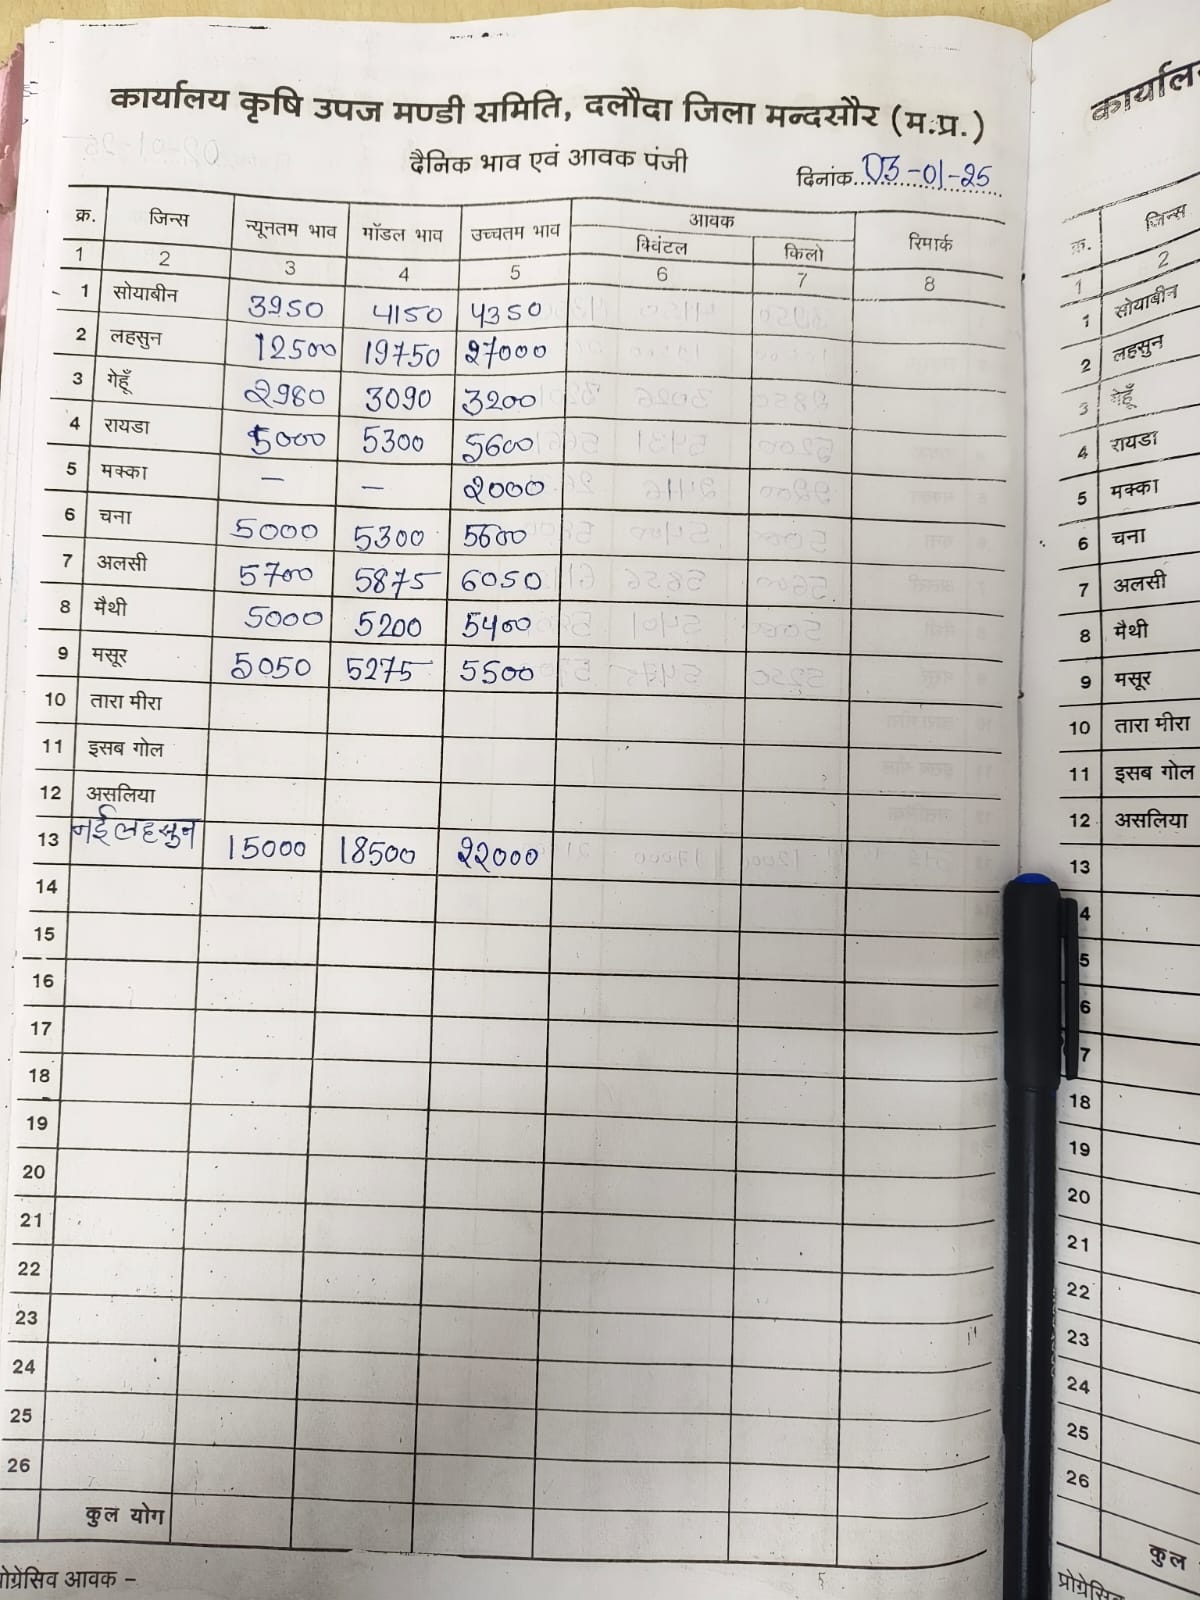 कार्यालय कृषि उपज मण्डी समिति, दलौदा जिला मन्दसौर (म.प्र.)
दैनिक भाव एवं आवक पंजी
दिनांक 03-01-25
क्र. जिन्स न्यूनतम भाव मॉडल भाव उच्चतम भाव आवक रिमार्क
क्विंटल किलो
1 2 3 4 5 6 7 8
1 सोयाबीन 3950 4150 4350
2 लहसुन 12500 19750 27000
3 गेहूँ 2980 3090 3200
4 रायडा 5000 5300 5600
5 मक्का – – 2000
6 चना 5000 5300 5600
7 अलसी 5700 5875 6050
8 मैथी 5000 5200 5400
9 मसूर 5050 5275 5500
10 तारा मीरा
11 इसब गोल
12 असलिया
13 नई लहसुन 15000 18500 22000
14
15
16
17
18
19
20
21
22
23
24
25
26
कुल योग
प्रोग्रेसिव आवक –
कार्यालय
क्र. जिन्स
1 2
1 सोयाबीन
2 लहसुन
3 गेहूँ
4 रायडा
5 मक्का
6 चना
7 अलसी
8 मैथी
9 मसूर
10 तारा मीरा
11 इसब गोल
12 असलिया
13
4
5
6
7
18
19
20
21
22
23
24
25
26
कुल
प्रोग्रेसिव